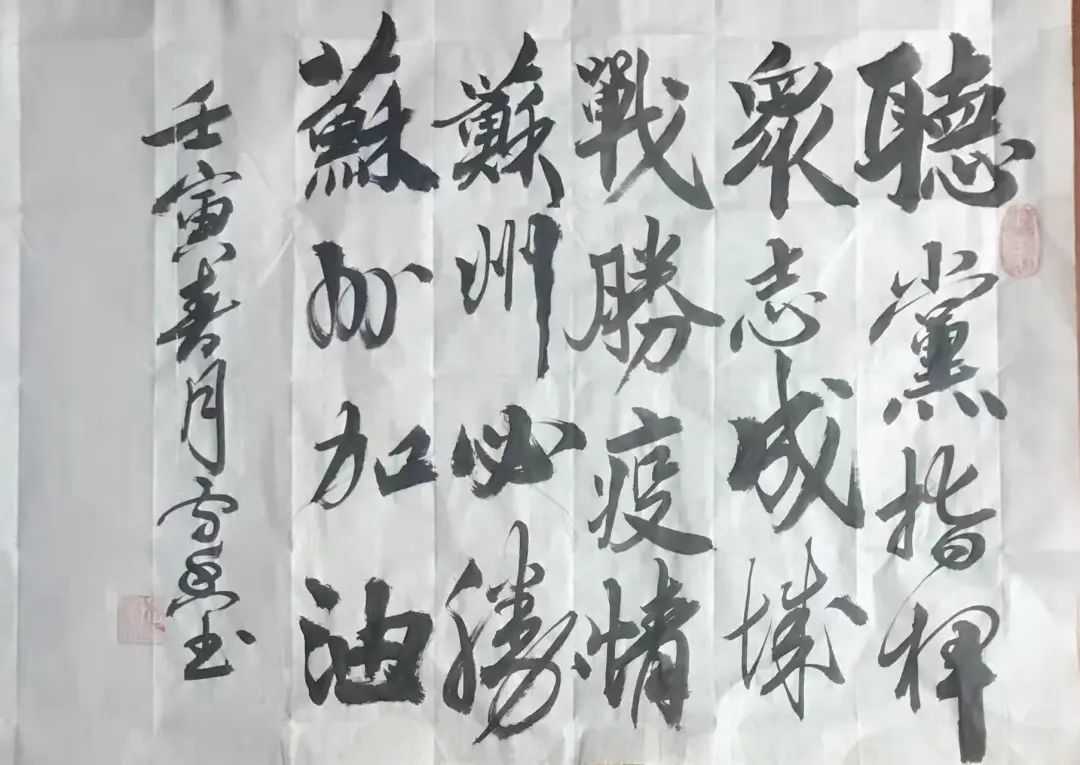 聽黨指揮
衆志成城
戰勝疫情
蘇州必勝
蘇州加油
壬寅春月